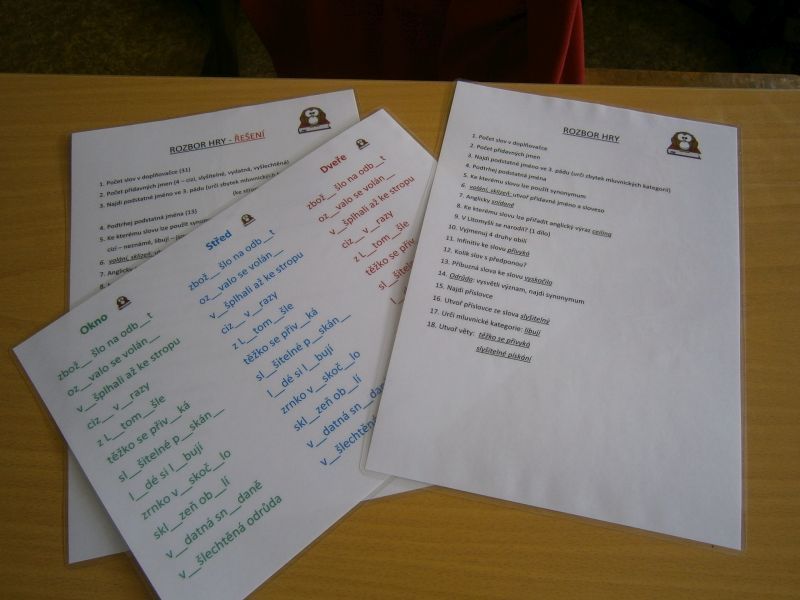 ROZBOR HRY - ŘEŠENÍ
1. Počet slov v doplňovačce (31)
2. Počet přídavných jmen (4 – cizí, slyšitelné, vydatná, vyšlechtěná)
3. Najdi podstatné jméno ve 3. pádu (urči zbytek mluvnických
4. Podtrhej podstatná jména (13)
5. Ke kterému slovu lze použít
cizí – neznámé, líbují –
6. volání, sklizeň,
7. Anglicky
Okno
zbož__ šlo na odb__t
oz__valo se volán__
v__šplhali až ke stropu
ciz__ v__razy
z L__tom__šle
těžko se přiv__ká
sl__šitelné p__skán__
l__dé si l__bují
zrnko v__skoč__lo
skl__zeň ob__lí
v__datná sn__daně
v__šlechtěná odrůda
Střed
zbož__ šlo na odb__t
oz__valo se volán__
v__šplhali až ke stropu
ciz__ v__razy
z L__tom__šle
těžko se přiv__ká
sl__šitelné p__skán__
l__dé si l__bují
zrnko v__skoč__lo
skl__zeň ob__lí
v__datná sn__daně
v__šlechtěná
Dveře
zbož__ šlo na odb__t
oz__valo se volán__
v__šplhali až ke stropu
ciz__ v__razy
z L__tom__šle
těžko se
sl__
l__
ROZBOR HRY
1. Počet slov v doplňovačce
2. Počet přídavných jmen
3. Najdi podstatné jméno ve 3. pádu (urči zbytek mluvnických kategorií)
4. Podtrhej podstatná jména
5. Ke kterému slovu lze použít synonymum
6. volání, sklizeň, utvoř přídavné jméno a sloveso
7. Anglicky snídaně
8. Ke kterému slovu lze přiřadit anglický výraz ceiling
9. V Litomyšli se narodil? (1 dílo)
10. Vyjmenuj 4 druhy obilí
11. Infinitiv ke slovu přivyká
12. Kolik slov s předponou?
13. Příbuzná slova ke slovu vyskočilo
14. Odrůda: vysvětli význam, najdi synonymum
15. Najdi příslovce
16. Utvoř příslovce ze slova slyšitelný
17. Urči mluvnické kategorie: libují
18. Utvoř věty: těžko se přivyká
slyšitelné pískání